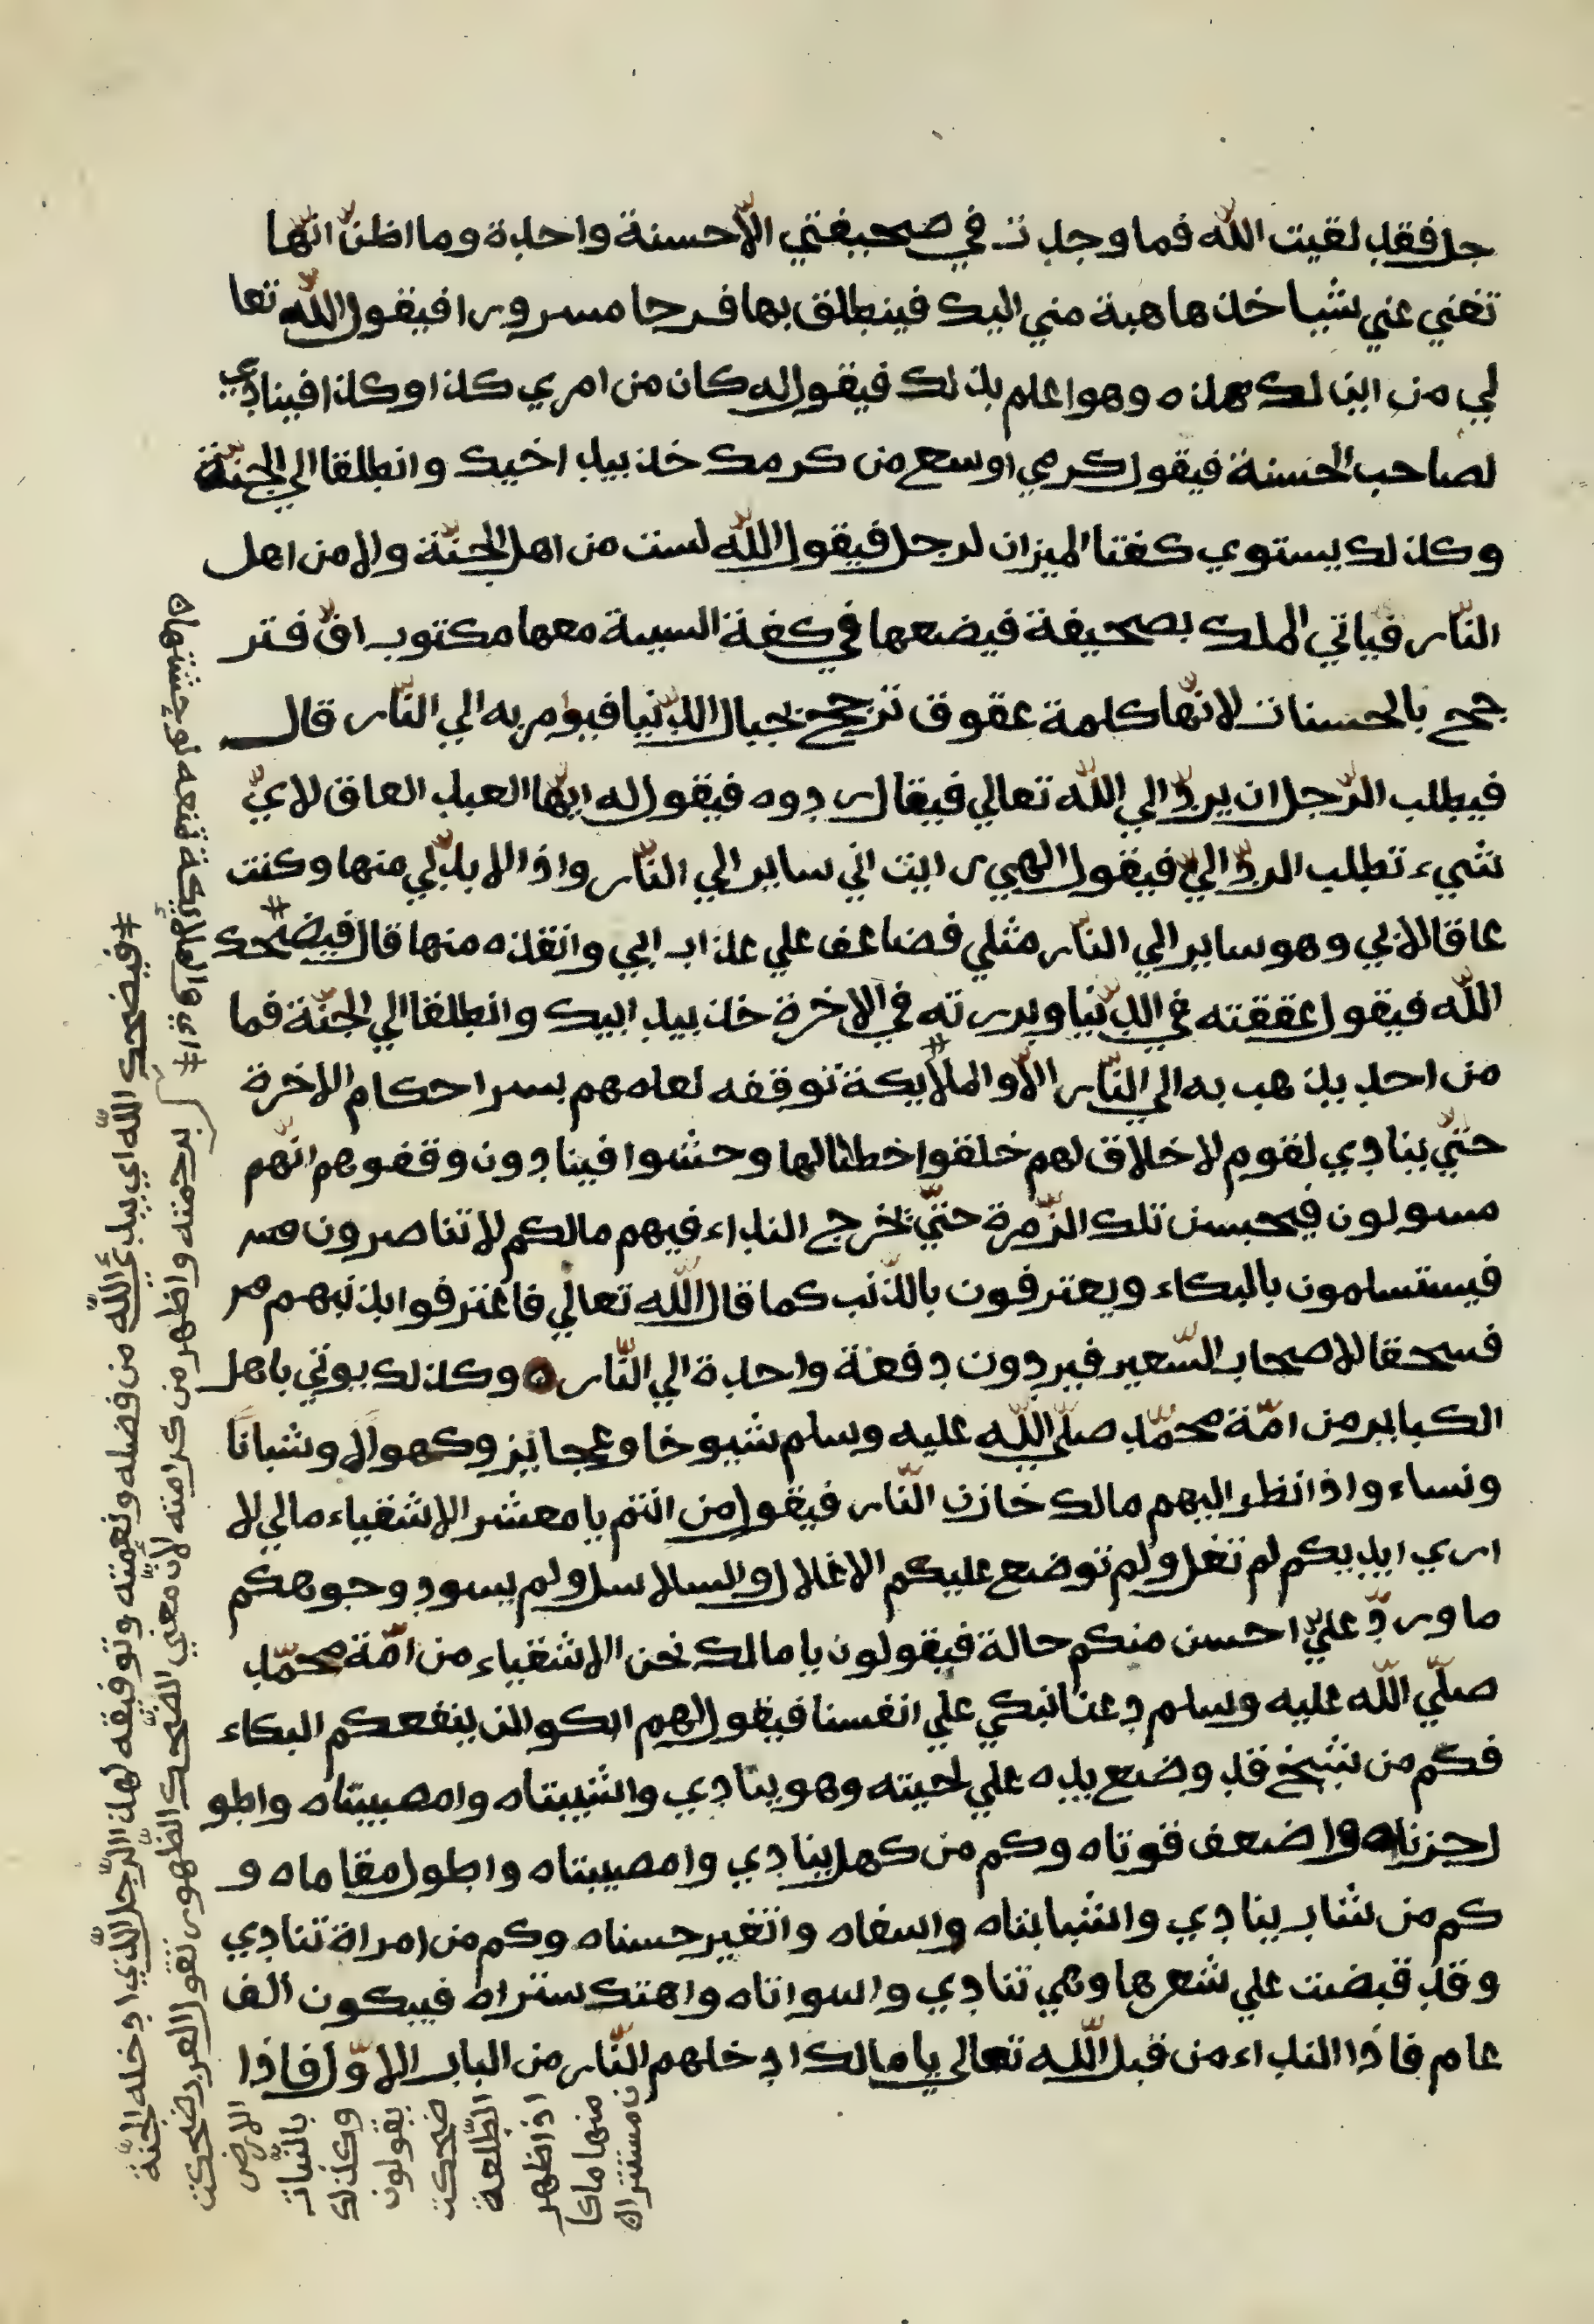 جل فقد لقيت اللّه فما وجدت في صحيفتي الّا حسنة واحدة وما اظنّ انّها
تغني عني شيا خذها هبة مني اليك فينطلق بها فرحا مسرورا فيقول اللّه تعا
لي من اين لك هذه وهو اعلم بذلك فيقول له كان من امري كذا وكذا فينادي
لصاحب الحسنة فيقول كرمي اوسع من كرمك خذ بيد اخيك وانطلقا الي الجنّة
وكذلك يستوي كفتا الميزان لرجل فيقول اللّه لست من اهل الجنّة ولا من اهل
النّار فياتي الملك بصحيفة فيضعها في كفة السيية معها مكتوب افّ فتر
جح بالحسنات لانّها كلمة عقوق ترجح بجبال الدّنيا فيؤمر به الي النّار قال
فيطلب الرّجل ان يردّ الي اللّه تعالي فيقال ردوه فيقول له ايّها العبد العاق لايّ
شيء تطلب الردّ اليّ فيقول الهي رايت اني ساير الي النّار واذا لا بدّ لي منها وكنت
عاقا لابي وهو ساير الي النّار مثلي فضاعف علي عذاب ابي وانقذه منها قال فيضحك
اللّه فيقول عققته في الدّنيا وبررته في الاخرة خذ بيد ابيك وانطلقا الي الجنّة فما
من احد يذهب به الي النّار الّا والملايكة توقفه لعلمهم بسر احكام الاخرة
حتّي ينادي لقوم لا خلاق لهم خلقوا حطبا لها وحشوا فينادون وقفوهم انّهم
مسولون فيحبس تلك الزّمرة حتّي تخرج النداء فيهم مالكم لا تناصرون
فيستسلمون بالبكاء ويعترفون بالذّنب كما قال اللّه تعالي فاعترفوا بذنبهم
فسحقا لاصحاب السّعير فيردون دفعة واحدة الي النّار ه وكذلك يوتي باهل
الكباير من امّة محمّد صلّي اللّه عليه وسلم شيوخا وعجايز وكهولا وشبانا
ونساء واذا نظر اليهم مالك خازن النّار فيقول من انتم يا معشر الاشقياء مالي لا
اري ايديكم لم تغل ولم توضع عليكم الاغلال والسلاسل ولم يسود وجوهكم
ما وردّ عليّ احسن منكم حالة فيقولون يا مالك نحن الاشقياء من امّة محمّد
صلّي اللّه عليه وسلم دعنا نبكي علي انفسنا فيقول لهم ابكوا لن ينفعكم البكاء
فكم من شيخ قد وضع يده علي لحيته وهو ينادي واشيبتاه وامصيبتاه واطو
احزناه واضعف قوتاه وكم من كهل ينادي وامصيبتاه واطول مقاماه و
كم من شاب ينادي واشبابناه واسفاه واتغير حسناه وكم من امراة تنادي
وقد قبضت علي شعرها وهي تنادي واسواتاه واهتك ستراه فيبكون الف
عام فاذا النداء من قبل اللّه تعالي يا مالك ادخلهم النّار من الباب الاوّل فاذا
# فيضحك اللّه اي يبدئ اللّه من فضله ونعمته وتوفيقه لهذا الرّجل الّذي ادخله الجنّة
برحمته واظهر من كرامته لانّ معني الضّحك الظّهور تقول العرب ضحكت
الارض
بالنّبات
وكذلك
يقولون
ضحكت
الطّلعة
اذا ظهر
منها ما كا
ن مستترا ه